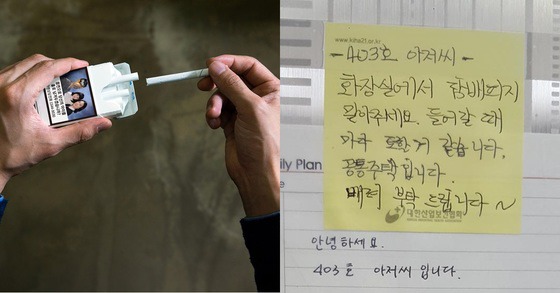 www.kiha21.or.kr
-403호 아저씨-
화장실에서 담배피지
말아주세요. 들어갈 때
마다
같습니다.
공통주택입니다.
배려 부탁 드립니다~
대한산업보건협회
ly Plan
안녕하세요.
403호 아저씨 입니다.